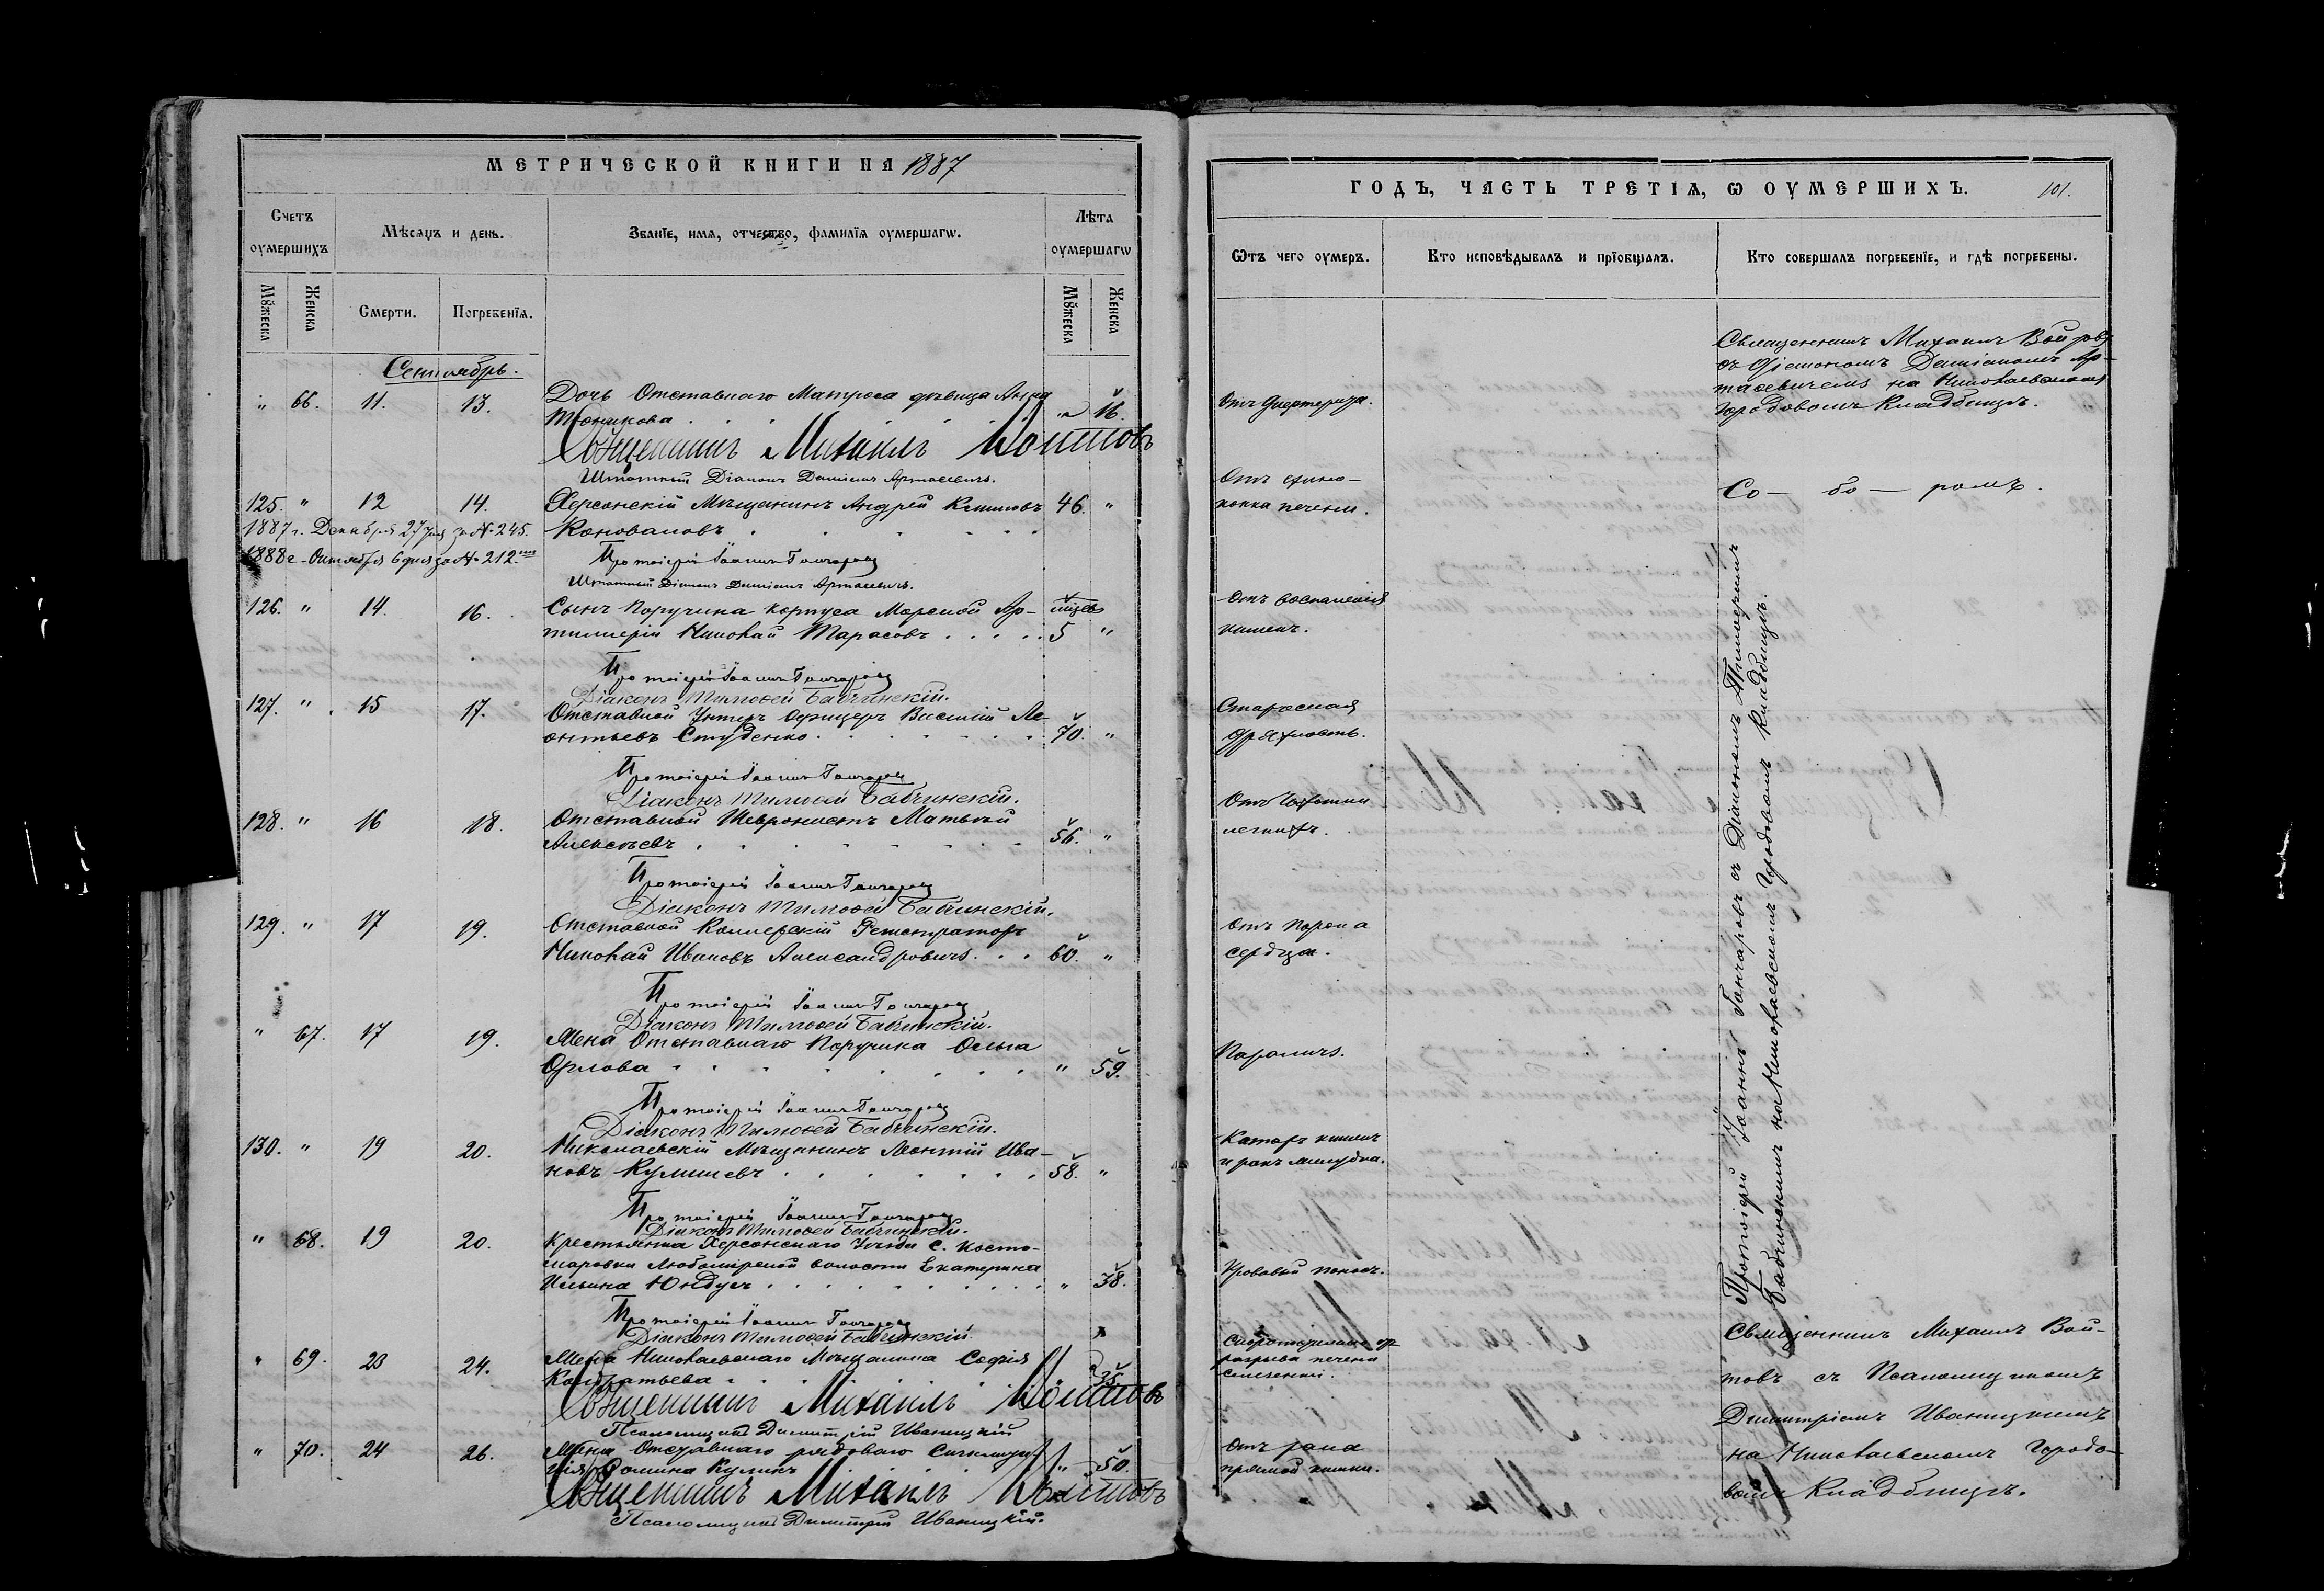 МЕТРИЧЕСКОЙ КНИГИ НА 1887
Счетъ оумершихъ
Мѣсяцъ и день.
Званїе, имя, отчество, фамилїя оумершагѡ.
Лѣта оумершагѡ
Мꙋжеска
Женска
Смерти.
Погребенїя.
Мꙋжеска
Женска
Сентябрь.
" 66. 11. 13. Дочь Отставнаго Матроса дѣвица Анна " 16.
Тоникова
Священникъ Михаилъ Войтовъ
Штатный Діаконъ Даміанъ Артасевичъ.
125. " 12 14. Херсонскій Мѣщанинъ Андрей Климовъ 46. "
1887 г. Декабря 27 дня за № 245. Коноваловъ
1888 г. Октября 6 дня за № 212.
Протоіерей Іоаннъ Гончаровъ
Штатный Діаконъ Даміанъ Артасевичъ.
126. " 14. 16. Сынъ Поручика корпуса Морской Ар- мѣсев
тиллеріи Николай Тарасовъ 5 "
Протоіерей Іоаннъ Гончаровъ
Діаконъ Тимоѳей Бабчинскій.
127. " 15 17. Отставной Унтеръ Офицеръ Василій Ле-
онтьевъ Студенко 70. "
Протоіерей Іоаннъ Гончаровъ
Діаконъ Тимоѳей Бабчинскій.
128. " 16 18. Отставной Шевронистъ Матвѣй
Алексѣевъ 56. "
Протоіерей Іоаннъ Гончаровъ
Діаконъ Тимоѳей Бабчинскій.
129. " 17 19. Отставной Коллежскій Регистраторъ
Николай Ивановъ Александровичъ 60. "
Протоіерей Іоаннъ Гончаровъ
Діаконъ Тимоѳей Бабчинскій.
" 67. 17 19. Жена Отставнаго Поручика Ольга
Орлова " 59.
Протоіерей Іоаннъ Гончаровъ
Діаконъ Тимоѳей Бабчинскій.
130. " 19 20. Николаевскій Мѣщанинъ Леонтій Ива-
новъ Кулишевъ 58. "
Протоіерей Іоаннъ Гончаровъ
Діаконъ Тимоѳей Бабчинскій.
" 68. 19 20. Крестьянка Херсонскаго Уѣзда С. Косто-
маровки Любомірской волости Екатерина
Ильина " 38.
Протоіерей Іоаннъ Гончаровъ
Діаконъ Тимоѳей Бабчинскій.
" 69. 23 24. Жена Николаевскаго Мѣщанина Софія
Кондратьева " 35.
Священникъ Михаилъ Войтовъ
Псаломщикъ Димитрій Иваницкій
" 70. 24 26. Жена Отставнаго рядоваго
Куликъ " 50.
Священникъ Михаилъ Войтовъ
Псаломщикъ Димитрій Иваницкій.
ГОДЪ, ЧАСТЬ ТРЕТІЯ, Ѡ ОУМЕРШИХЪ.
101.
Ѿтъ чего оумеръ.
Кто исповѣдывалъ и прїобщалъ.
Кто совершалъ погребенїе, и гдѣ погребены.
Отъ Дифтерита.
Священникъ Михаилъ Войтовъ
съ Діакономъ Даміаномъ Ар-
тасевичемъ на Николаевскомъ
Городовомъ Кладбищѣ.
Отъ эхино-
кокка печени.
Со — бо — ромъ.
Отъ воспаленія
кишекъ.
Старческая
дряхлость.
Отъ Чахотки
легкихъ.
Отъ Порока
сердца.
Параличъ.
Катаръ кишекъ
и ракъ желудка.
Кровавый поносъ.
Протоіерей Іоаннъ Гончаровъ съ Діакономъ Тимоѳеемъ
Бабчинскимъ на Николаевскомъ Городовомъ Кладбищѣ.
разрыва печени
Священникъ Михаилъ Вой-
товъ съ Псаломщикомъ
Димитріемъ Иваницкимъ
на Николаевскомъ Городо-
вомъ Кладбищѣ.
Отъ рака
прямой кишки.